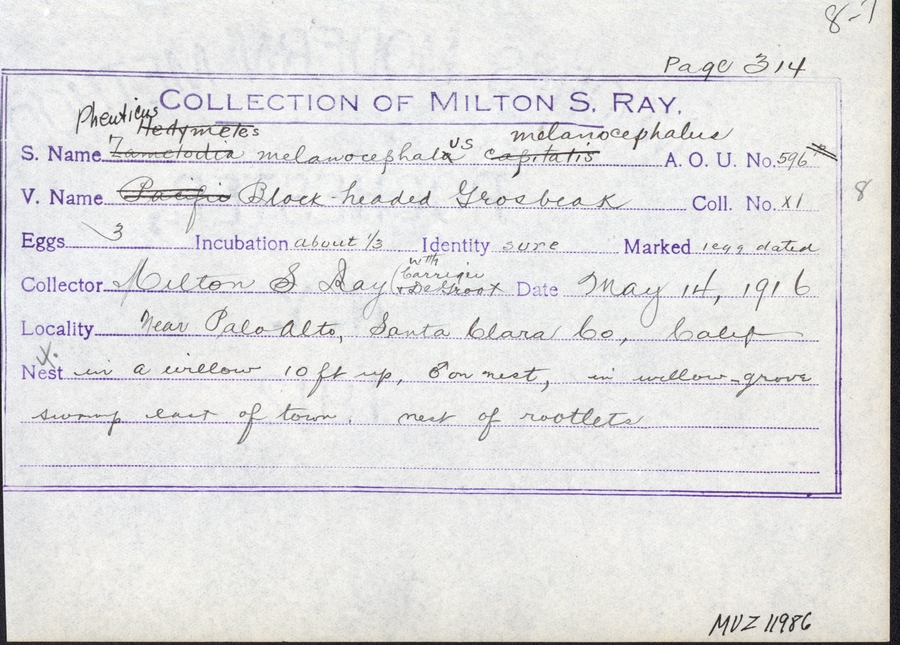 8-7
Page 314
COLLECTION OF MILTON S. RAY.
Pheuticus Hedymeles melanocephalus
S. Name Zamelodia melanocephalaus capitalis A. O. U. No. 596
V. Name Pacific Black-headed Grosbeak Coll. No. XI
8
Eggs 3 Incubation about 1/3 Identity sure Marked 1 egg dated
Collector Milton S Ray (with Carriger + DeGroot Date May 14, 1916
Locality Near Palo Alto, Santa Clara Co, Calif
Nest in a willow 10 ft up, ♂ on nest, in willow-grove
swamp east of town. nest of rootlets
MVZ 11986